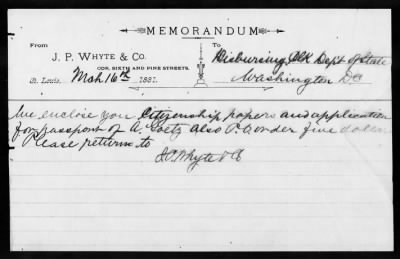 MEMORANDUM
From
To
J. P. WHYTE & CO.
COR. SIXTH AND PINE STREETS.
Disbursing Clk Dept of State
St. Louis, Mch 16th 1881.
Washington DC
We enclose you Citizenship papers and application
for passport of A. Goetz also P.O. order five dollars
Please return to
J.P. Whyte & Co